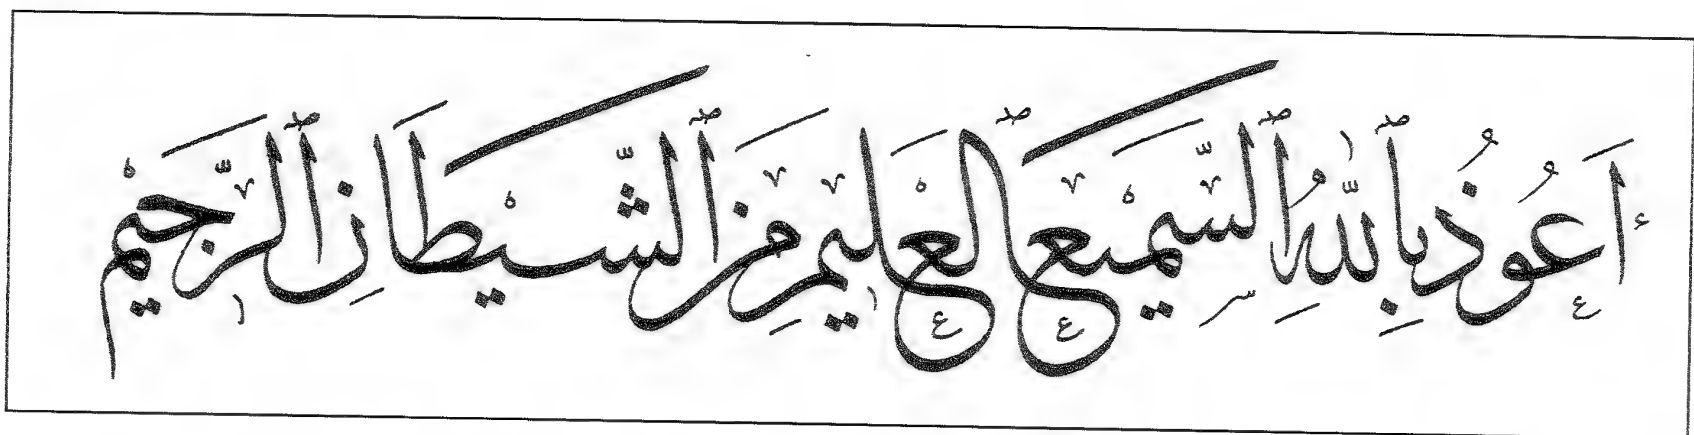 أَعُوذُ بِٱللَّهِ ٱلسَّمِيعِ ٱلْعَلِيمِ مِنَ ٱلشَّيْطَانِ ٱلرَّجِيمِ